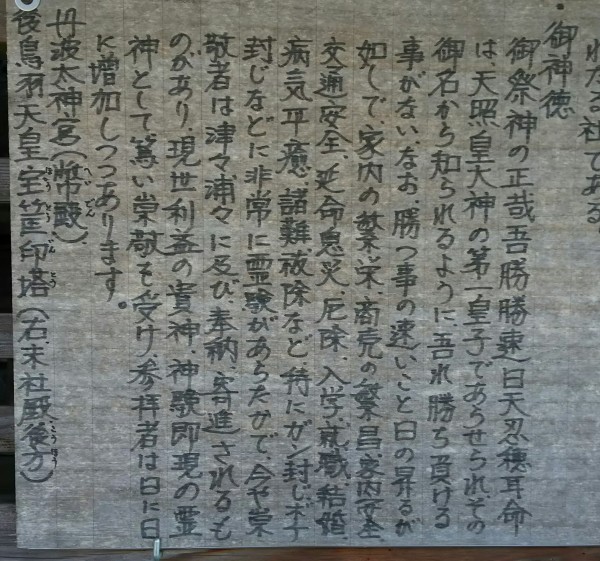 れたる社である。
・御神徳
御祭神の正哉吾勝勝速日天忍穂耳命
は、天照皇大神の第一皇子であらせられその
御名から知られるように、吾れ勝ち負ける
事がない、なお、勝つ事の速いこと日の昇るが
如しで、家内の繁栄、商売の繁昌、家内安全、
交通安全、延命息災、厄除、入学、就職、結婚
病気平癒、諸難祓除など特にガン封じボケ
封じなどに非常に霊験があらたかで、今や崇
敬者は津々浦々に及び、奉納、寄進されるも
のがあり、現世利益の貴神、神験即現の霊
神として篤い崇敬を受け、参拝者は日に日
に増加しつつあります。
丹波太神宮(幣殿)へいでん
後鳥羽天皇宝筐印塔(右、末社殿後方)ほうきょういんとう こうほう